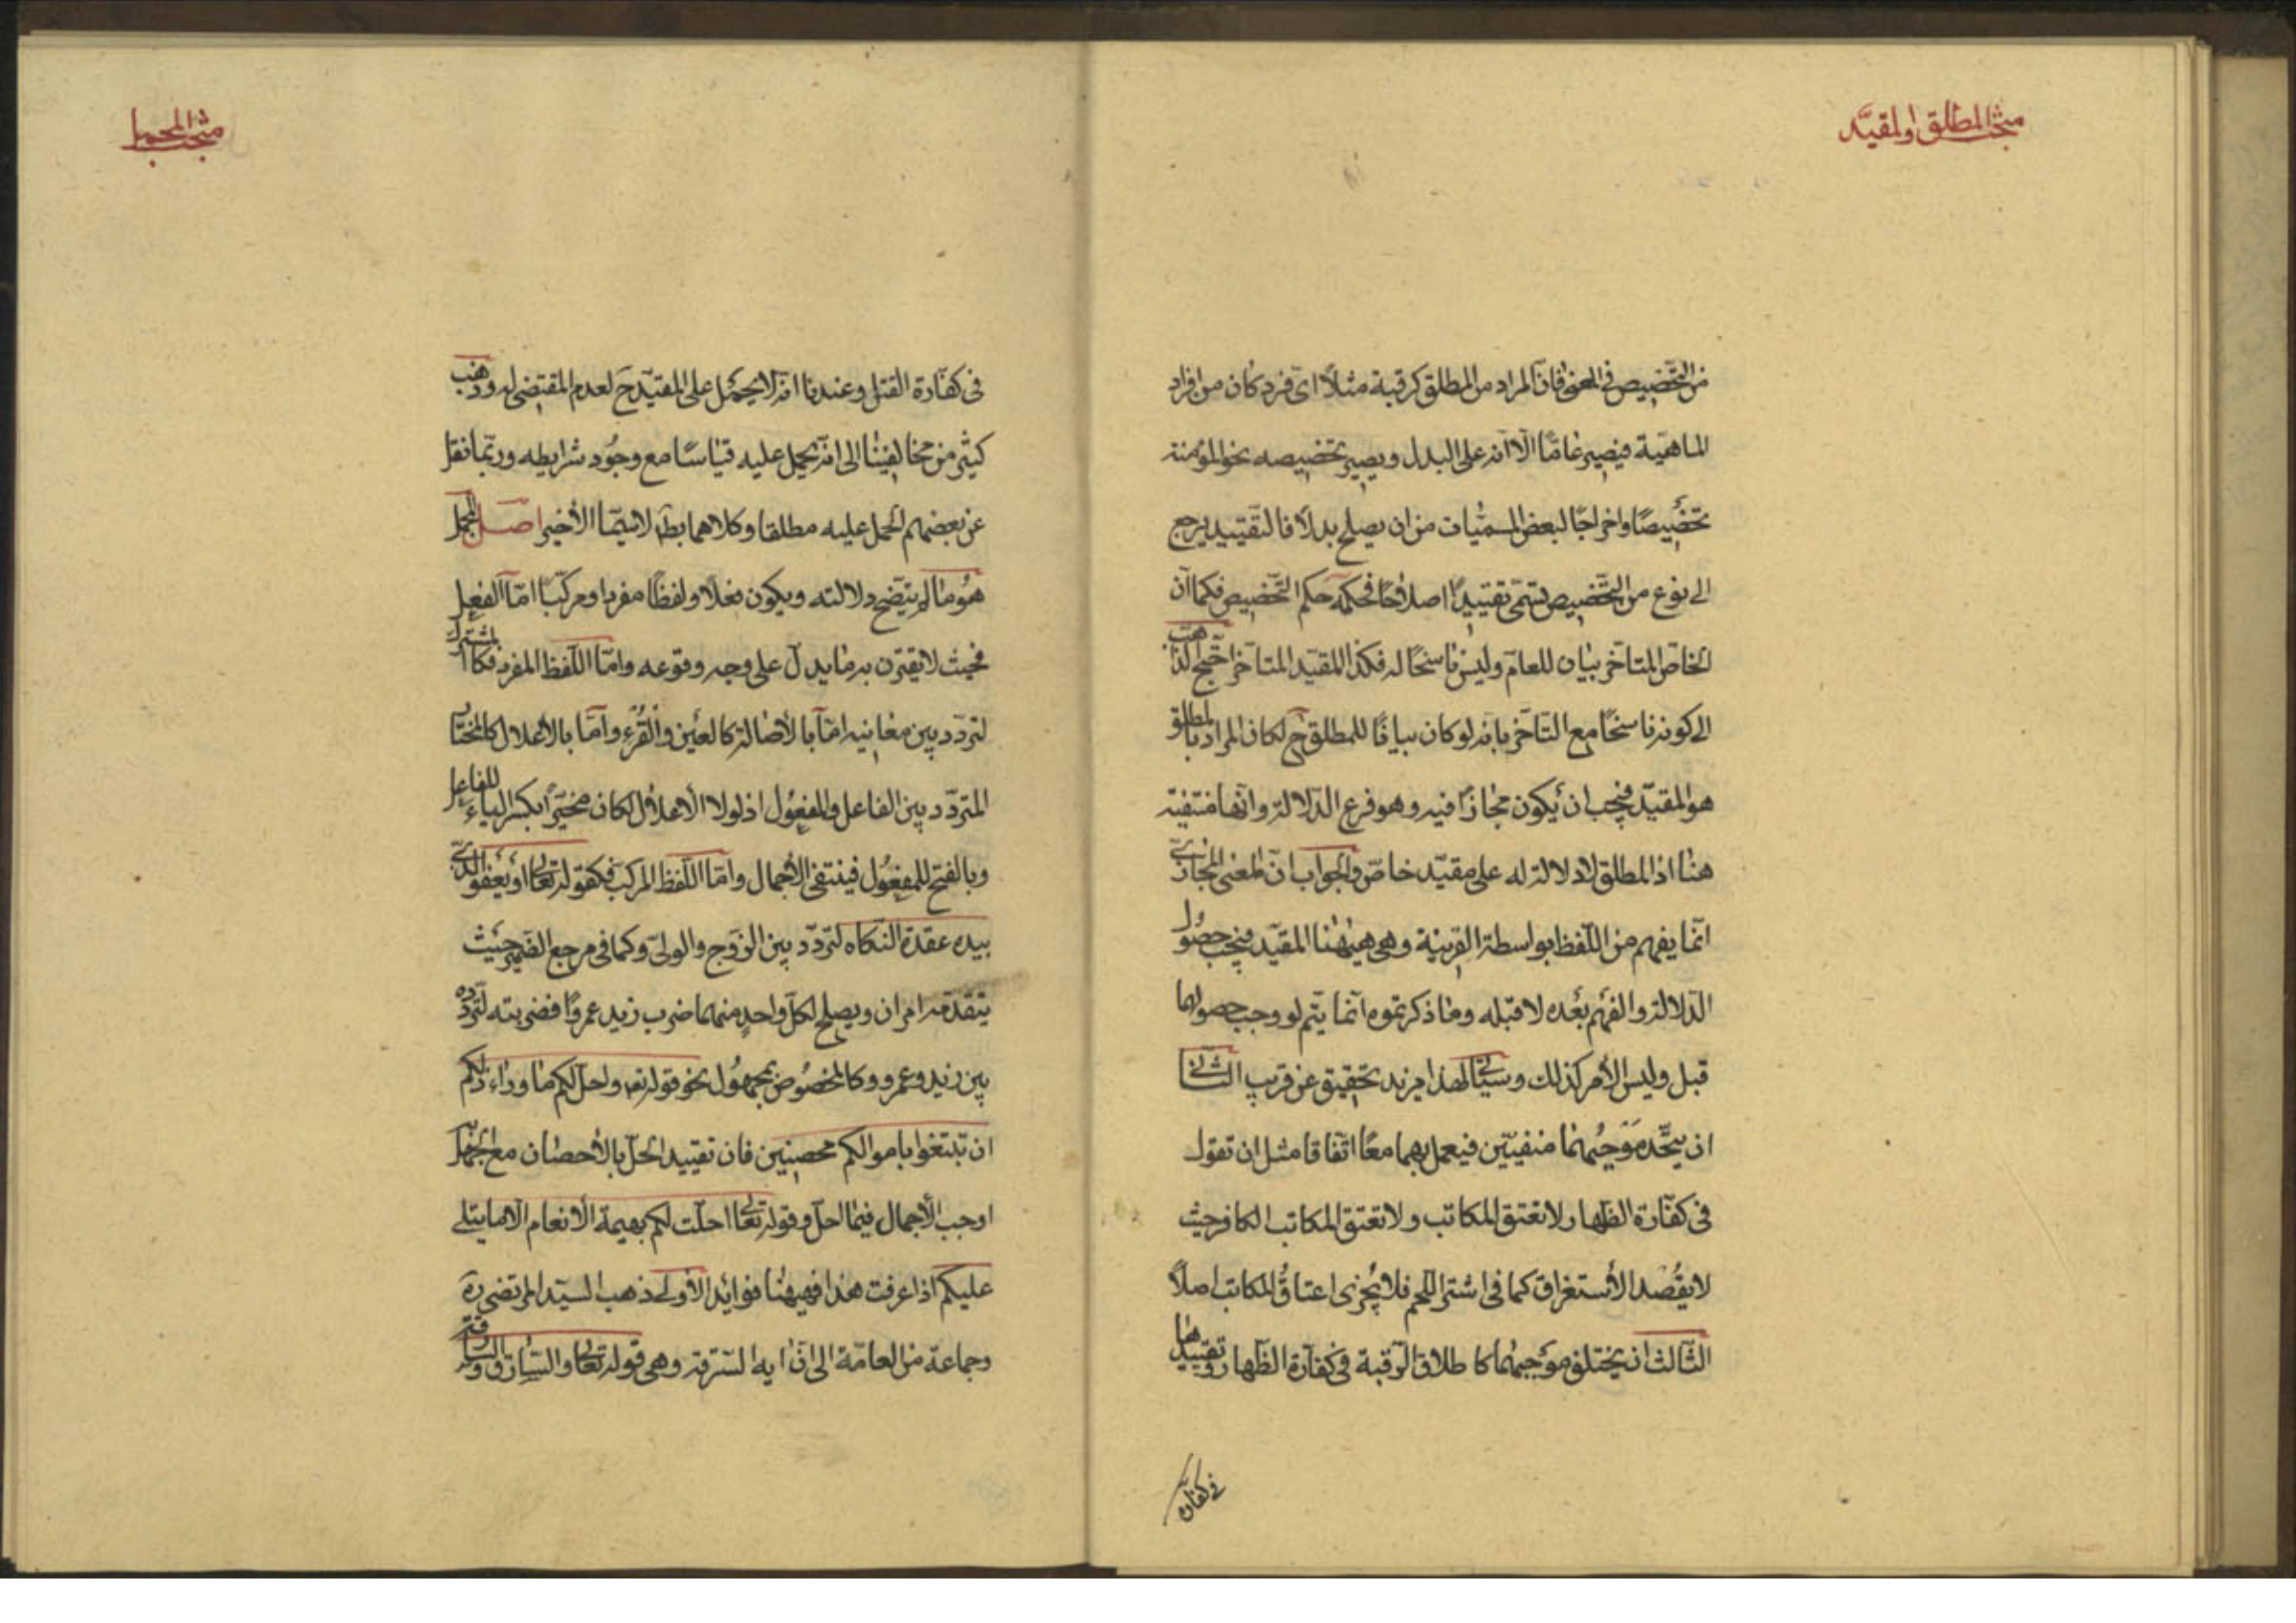 مبحث المطلق والمقيّد
من التّخصيص فى المعنى فانّ المراد من المطلق كرقبة مثلاً اىّ فرد كان من افراد
الماهيّة فيصير عامّا الّا انّه على البدل ويصير تخصيصه بنحو المؤمنة
تخصيصًا واخراجًا لبعض المسمّيات من ان يصلح بدلاً فالتقييد يرجع
الى نوع من التّخصيص يسمّى تقييدًا اصطلاحًا فحكمه حكم التّخصيص فكما انّ
الخاصّ المتاخّر بيان للعامّ وليس ناسخًا له فكذا المقيّد المتاخّر احتجّ الذاهب
الى كونه ناسخًا مع التّاخّر بانّه لو كان بيانًا للمطلق ح لكان المراد بالمطلق
هو المقيّد فيجب ان يكون مجازًا فيه وهو فرع الدّلالة وانّها منتفية
هنا اذ المطلق لا دلالة له على مقيّد خاصّ والجواب انّ المعنى المجازىّ
انّما يفهم من اللّفظ بواسطة القرينة وهى هيهنا المقيّد فيجب حصول
الدّلالة والفهم بعده لا قبله وما ذكرتموه انّما يتّم لو وجب حصولهما
قبل وليس الأمر كذلك وسيأتى لهذا مزيد تحقيق عن قريب الثّانى
ان يتّحد موجبهما منفيّين فيعمل بهما معًا اتّفاقا مثل ان تقول
فى كفّارة الظّهار لا تعتق المكاتب ولا تعتق المكاتب الكافر حيث
لا يقصد الأستغراق كما فى اشتر اللّحم فلا يجزى اعتاق المكاتب اصلاً
الثّالث ان يختلف موجبهما كاطلاق الرّقبة فى كفّارة الظّهار وتقييدها
فى كفّارة
مبحث المجمل
فى كفّارة القتل وعندنا انّه لا يحمل على المقيّد ح لعدم المقتضى له وذهب
كثير من مخالفينا الى انّه يحمل عليه قياسًا مع وجود شرايطه وربّما نقل
عن بعضهم الحمل عليه مطلقا وكلاهما بط لا سيّما الأخير اصل المجمل
هو ما لم يتّضح دلالته ويكون فعلاً ولفظًا مفردا ومركّبًا امّا الفعل
فحيث لا يقترن به ما يدلّ على وجه وقوعه وامّا اللّفظ المفرد فكالمشترك
لتردّده بين معانيه امّا بالأصالة كالعين والقُرء وامّا بالأعلال كالمختار
المتردّد بين الفاعل والمفعول اذ لولا الأعلال لكان مختيرًا بكسر الياء للفاعل
وبالفتح للمفعول فينتفى الأجمال وامّا اللّفظ المركب فكقوله تعالى او يعفو الّذى
بيده عقدة النّكاه لتردّد بين الزّوج والولىّ وكما فى مرجع الضّمير حيث
يتقدّمه امران ويصلح لكلّ واحدٍ منهما كما ضرب زيد عمروًا فضربته لتردّده
بين زيد وعمرو وكالمخصوص بمجهول نحو قوله تعم واحلّ لكم ما وراء ذلكم
ان تبتغوا باموالكم محصنين فان تقييد الحلّ بالأحصان مع الجهل به
اوجب الأجمال فيما احلّ وقوله تعالى احلّت لكم بهيمة الأنعام الّا ما يتلى
عليكم اذا عرفت هذا فهيهنا فوائد الأولى ذهب السيّد المرتضى ره
وجماعة من العامّة الى انّ ايه السّرقه وهى قوله تعالى والسّارق والسّارقة